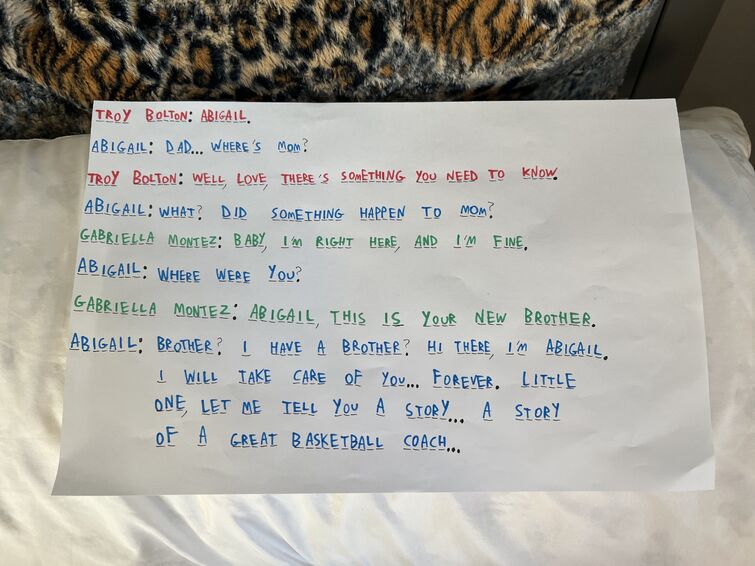 TROY BOLTON: ABIGAIL.
ABIGAIL: DAD... WHERE'S MOM?
TROY BOLTON: WELL, LOVE, THERE'S SOMETHING YOU NEED TO KNOW.
ABIGAIL: WHAT? DID SOMETHING HAPPEN TO MOM?
GABRIELLA MONTEZ: BABY, I'M RIGHT HERE, AND I'M FINE.
ABIGAIL: WHERE WERE YOU?
GABRIELLA MONTEZ: ABIGAIL, THIS IS YOUR NEW BROTHER.
ABIGAIL: BROTHER? I HAVE A BROTHER? HI THERE, I'M ABIGAIL.
I WILL TAKE CARE OF YOU... FOREVER. LITTLE
ONE, LET ME TELL YOU A STORY... A STORY
OF A GREAT BASKETBALL COACH...